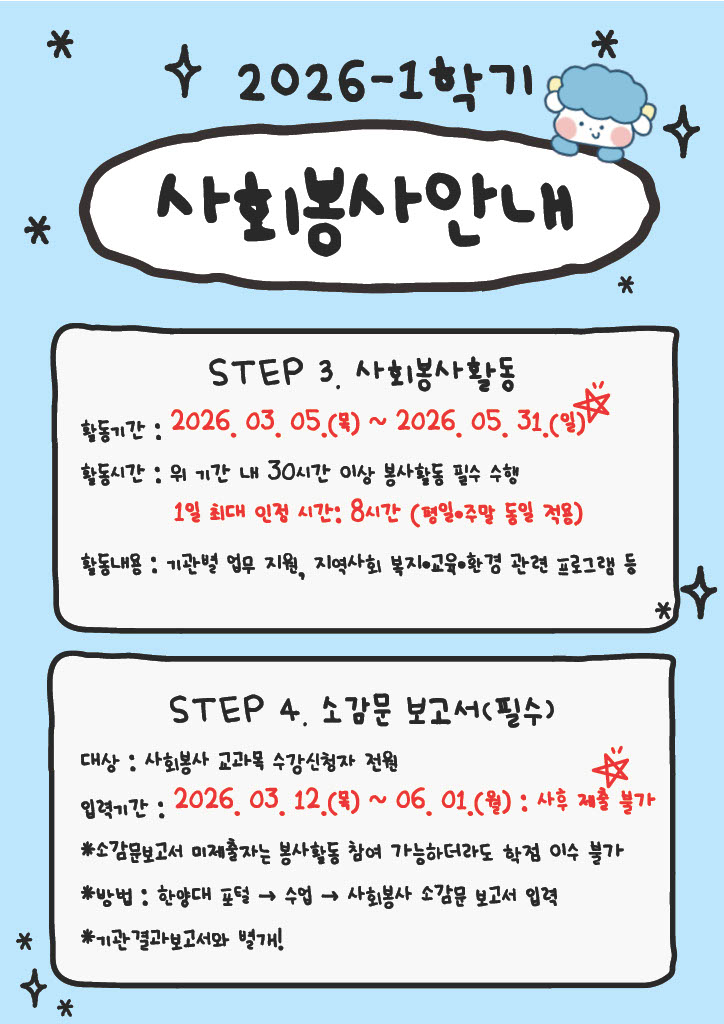 2026-1학기
사회봉사안내
STEP 3. 사회봉사활동
활동기간 : 2026. 03. 05.(목) ~ 2026. 05. 31.(일)
활동시간 : 위 기간 내 30시간 이상 봉사활동 필수 수행
1일 최대 인정 시간: 8시간 (평일•주말 동일 적용)
활동내용 : 기관별 업무 지원, 지역사회 복지•교육•환경 관련 프로그램 등
STEP 4. 소감문 보고서(필수)
대상 : 사회봉사 교과목 수강신청자 전원
입력기간 : 2026. 03. 12.(목) ~ 06. 01.(월) : 사후 제출 불가
*소감문보고서 미제출자는 봉사활동 참여 가능하더라도 학점 이수 불가
*방법 : 한양대 포털 → 수업 → 사회봉사 소감문 보고서 입력
*기관결과보고서와 별개!